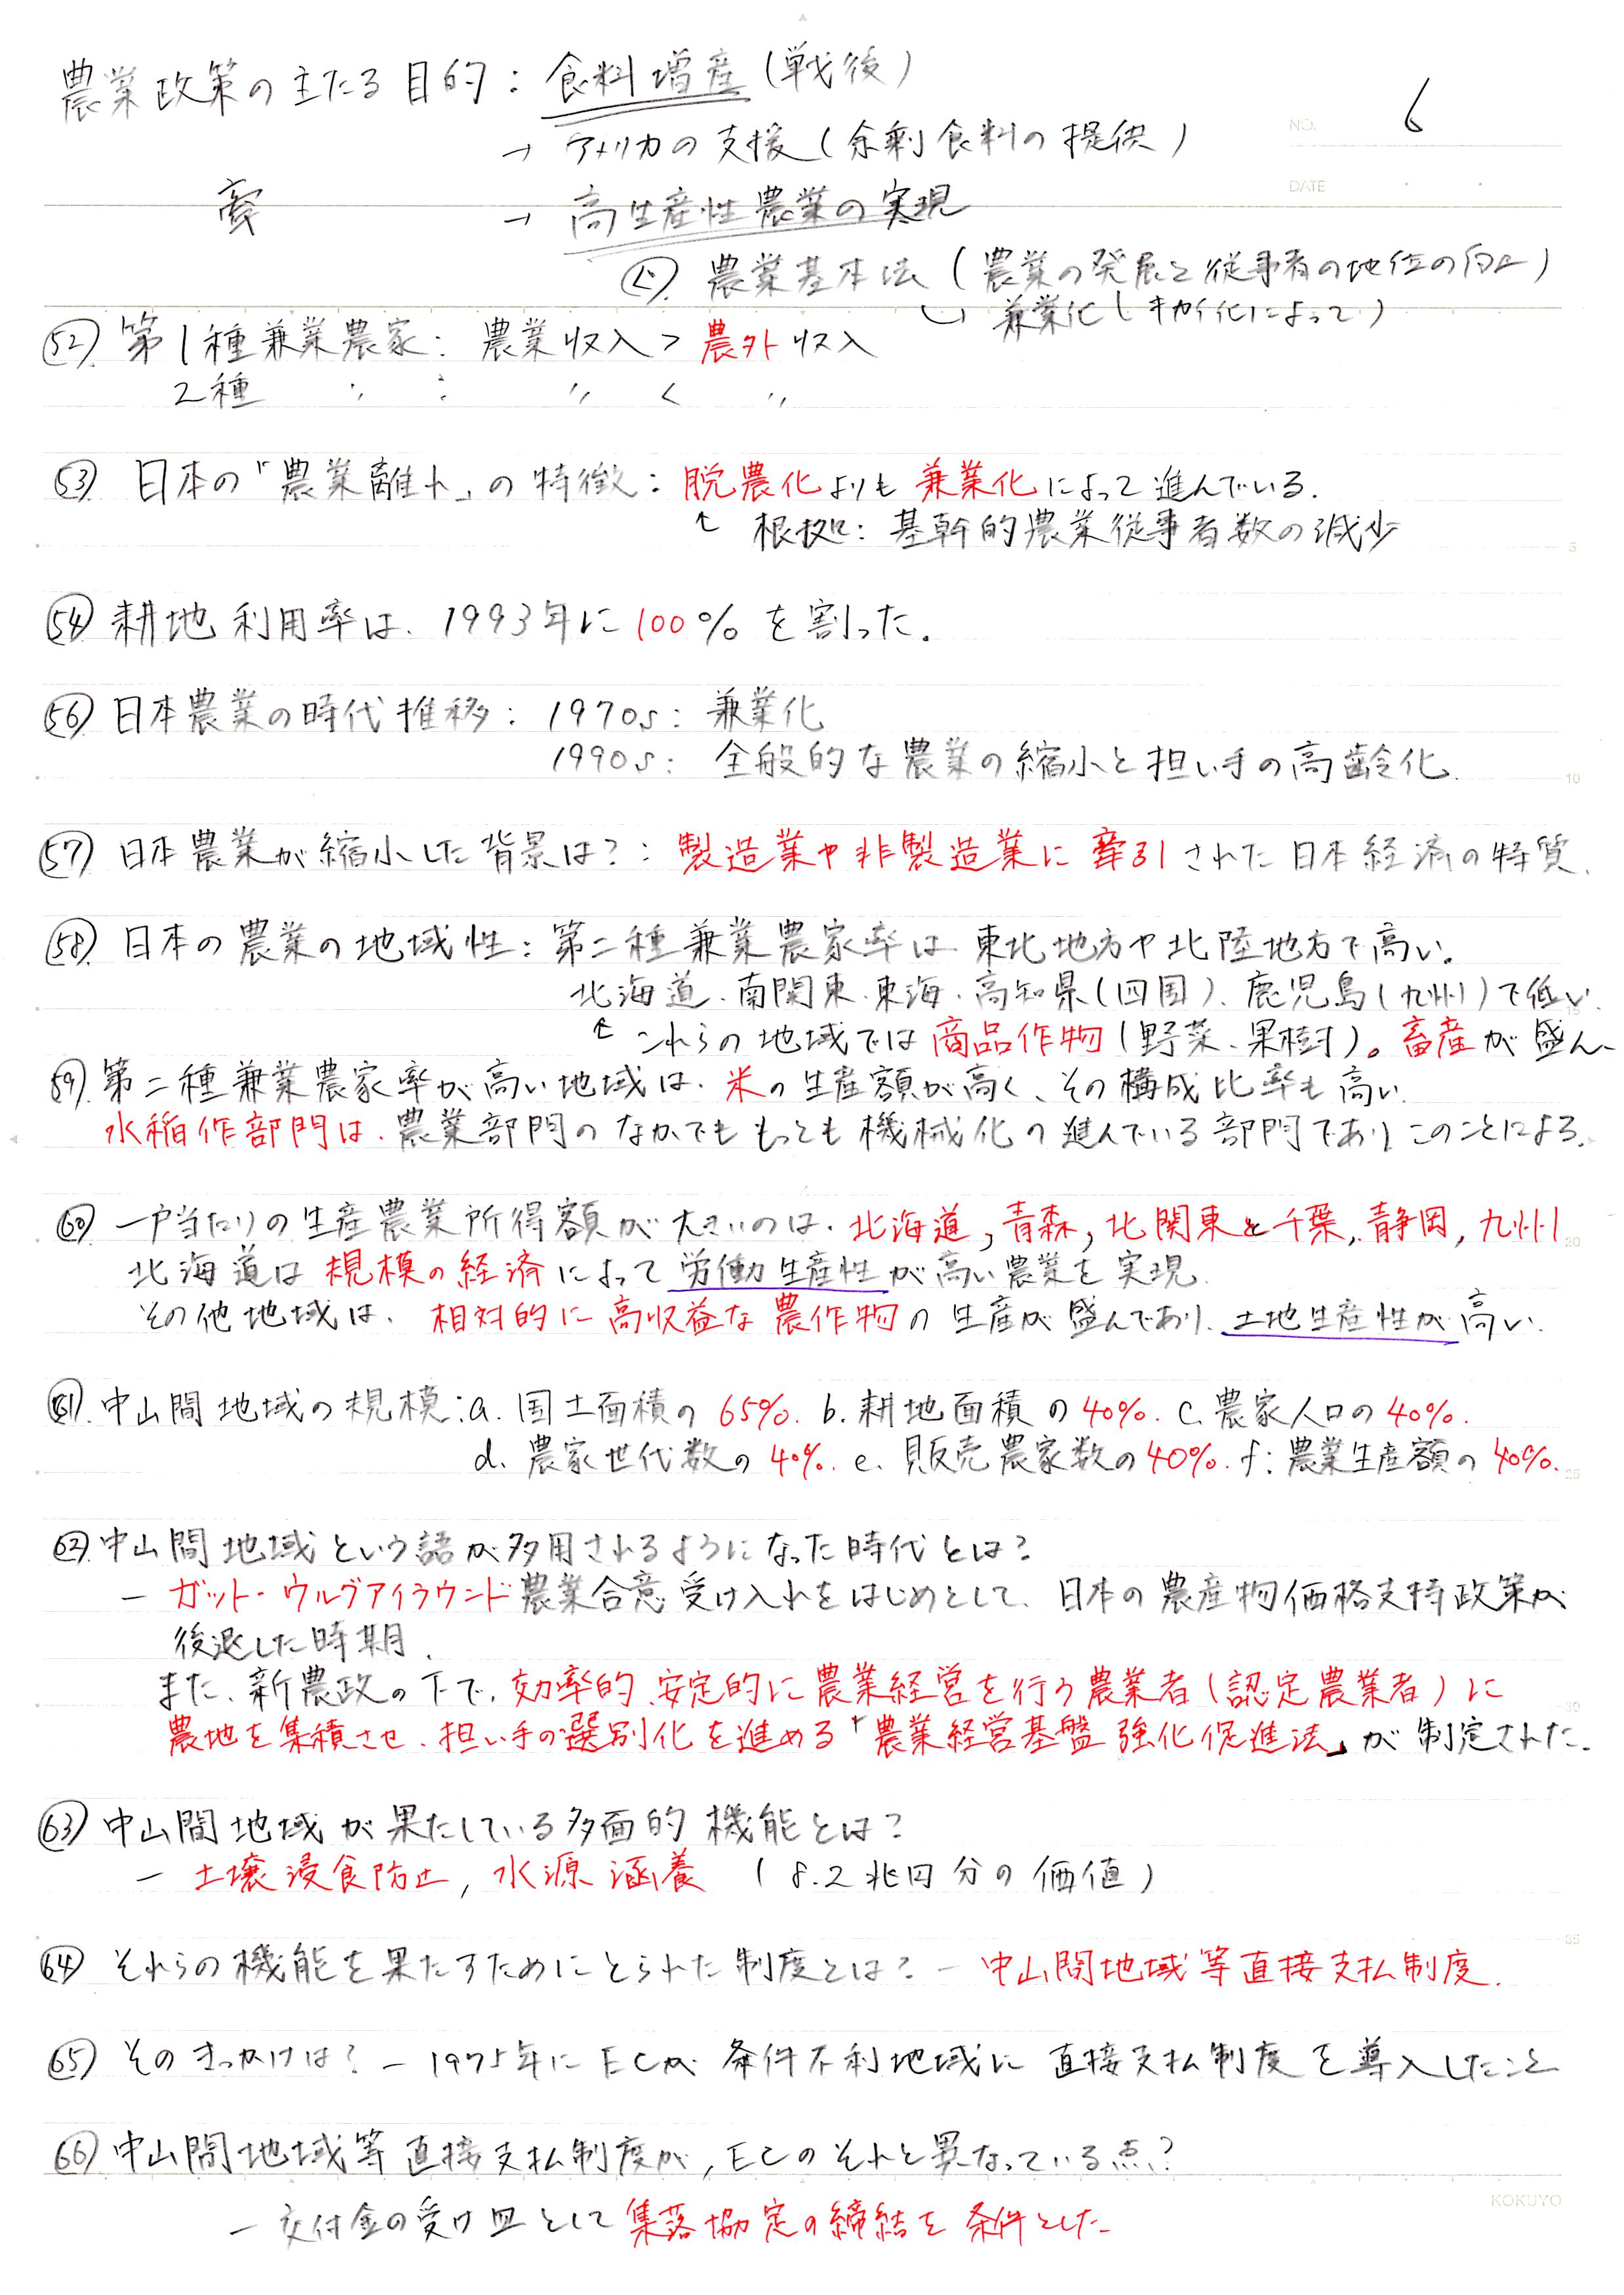 農業政策の主たる目的：食料増産（戦後）
NO. 6
→ アメリカの支援（余剰食料の提供）
DATE
牽
→ 高生産性農業の実現
農業基本法（農業の発展と従事者の地位の向上）
兼業化（キカイ化によって）
52 第1種兼業農家：農業収入＞農外収入
2種 〃：〃 ＜ 〃
53 日本の「農業離れ」の特徴：脱農化よりも兼業化によって進んでいる．
↑ 根拠：基幹的農業従事者数の減少
5
54 耕地利用率は、1993年に100％を割った。
56 日本農業の時代推移：1970s：兼業化
1990s：全般的な農業の縮小と担い手の高齢化．
10
57 日本農業が縮小した背景は？：製造業や非製造業に牽引された日本経済の特質．
58 日本の農業の地域性：第二種兼業農家率は 東北地方や北陸地方で高い。
北海道、南関東、東海、高知県（四国）、鹿児島（九州）で低い．
15
↑ これらの地域では商品作物（野菜、果樹）。畜産が盛ん、
59 第二種兼業農家率が高い地域は、米の生産額が高く、その構成比率も高い．
水稲作部門は、農業部門のなかでももっとも機械化の進んでいる部門でありこのことによる．
60 一戸当たりの生産農業所得額が大きいのは、北海道，青森，北関東と千葉，静岡，九州
20
北海道は規模の経済によって労働生産性が高い農業を実現．
その他地域は、相対的に高収益な農作物の生産が盛んであり、土地生産性が高い．
61 中山間地域の規模：a. 国土面積の65％．b. 耕地面積の40％．c. 農家人口の40％．
d. 農家世代数の40％．e. 販売農家数の40％．f：農業生産額の40％．
25
62 中山間地域という語が多用されるようになった時代とは？
－ ガット・ウルグアイラウンド農業合意受け入れをはじめとして、日本の農産物価格支持政策が
後退した時期．
また、新農政の下で、効率的、安定的に農業経営を行う農業者（認定農業者）に
30
農地を集積させ、担い手の選別化を進める「農業経営基盤強化促進法」が制定された．
63 中山間地域が果たしている多面的機能とは？
－ 土壌浸食防止，水源涵養（8.2兆円分の価値）
35
64 それらの機能を果たすためにとられた制度とは？－ 中山間地域等直接支払制度．
65 そのきっかけは？－ 1975年にECが条件不利地域に直接支払制度を導入したこと
66 中山間地域等直接支払制度が，ECのそれと異なっている点？
KOKUYO
－ 交付金の受け皿として集落協定の締結を条件とした－